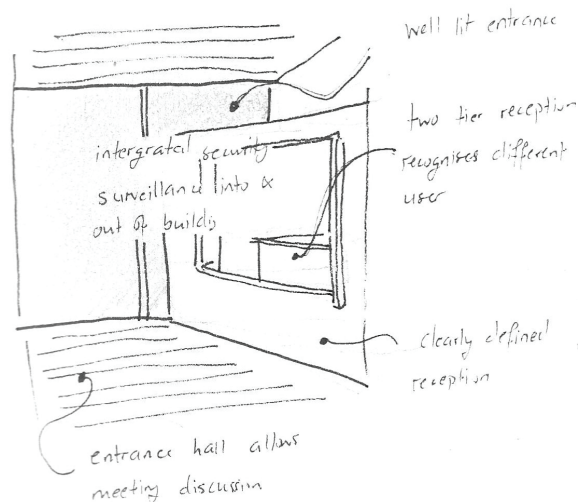 well lit entrance
two tier reception
recognises different
user
intergratal security
surveillance into &
out of buildig
clearly defined
reception
entrance hall allows
meeting discussion